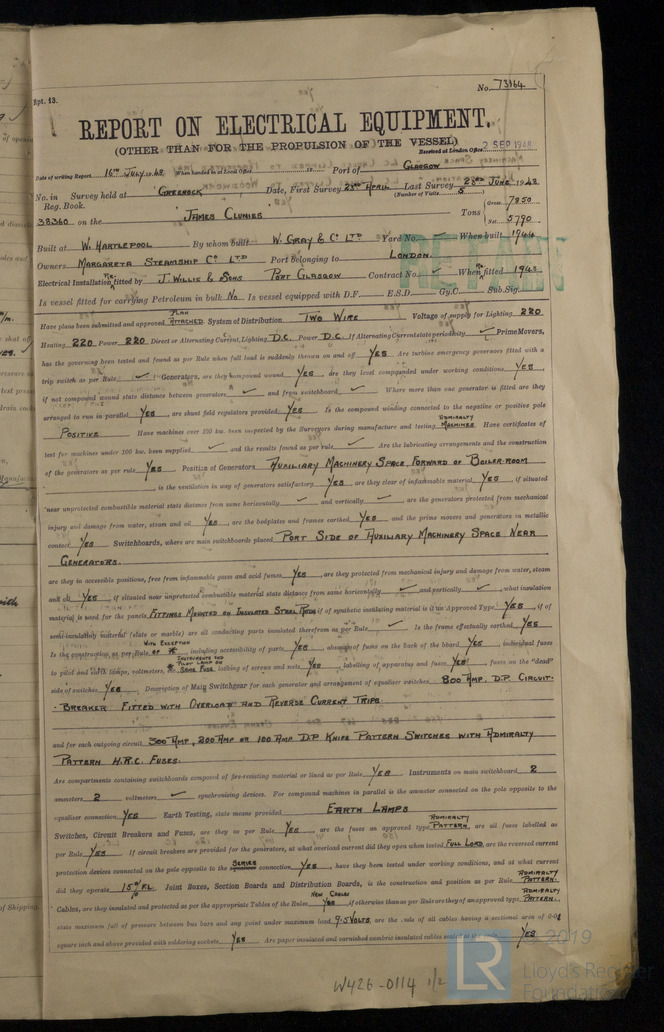 Rpt. 13.
No. 73164
REPORT ON ELECTRICAL EQUIPMENT.
(OTHER THAN FOR THE PROPULSION OF THE VESSEL)
Received at London Office 2 SEP 1948
Date of writing Report 16TH JULY 1948 When handed in at Local Office 19 Port of GLASGOW
No. in Survey held at GREENOCK Date, First Survey 23RD APRIL Last Survey 28TH JUNE 1948
Reg. Book. (Number of Visits 5)
38360 on the "JAMES CLUNIES" Tons Gross 7250 Net 5790
Built at W. HARTLEPOOL By whom built W. GRAY & CO LTD Yard No. When built 1944
Owners MARGARETA STEAMSHIP CO LTD Port belonging to LONDON
Electrical Installation RE- fitted by J. WILLIS & SONS PORT GLASGOW Contract No. When RE- fitted 1948
Is vessel fitted for carrying Petroleum in bulk NO Is vessel equipped with D.F. E.S.D. Gy.C. Sub.Sig.
Have plans been submitted and approved PLAN ATTACHED. System of Distribution TWO WIRE Voltage of supply for Lighting 220
Heating 220 Power 220 Direct or Alternating Current, Lighting D.C. Power D.C. If Alternating Current state periodicity Prime Movers,
has the governing been tested and found as per Rule when full load is suddenly thrown on and off YES Are turbine emergency governors fitted with a
trip switch as per Rule Generators, are they compound wound YES are they level compounded under working conditions YES,
if not compound wound state distance between generators and from switchboard Where more than one generator is fitted are they
arranged to run in parallel YES, are shunt field regulators provided YES Is the compound winding connected to the negative or positive pole
POSITIVE Have machines over 100 kw. been inspected by the Surveyors during manufacture and testing ADMIRALTY MACHINES Have certificates of
test for machines under 100 kw. been supplied and the results found as per rule Are the lubricating arrangements and the construction
of the generators as per rule YES Position of Generators AUXILIARY MACHINERY SPACE, FORWARD OF BOILER-ROOM
is the ventilation in way of generators satisfactory YES are they clear of inflammable material YES, if situated
near unprotected combustible material state distance from same horizontally and vertically are the generators protected from mechanical
injury and damage from water, steam and oil YES, are the bedplates and frames earthed YES and the prime movers and generators in metallic
contact YES Switchboards, where are main switchboards placed PORT SIDE OF AUXILIARY MACHINERY SPACE NEAR
GENERATORS.
are they in accessible positions, free from inflammable gases and acid fumes YES, are they protected from mechanical injury and damage from water, steam
and oil YES if situated near unprotected combustible material state distance from same horizontally and vertically, what insulation
material is used for the panels FITTINGS MOUNTED ON INSULATED STEEL RODS if of synthetic insulating material is it an Approved Type YES, if of
semi-insulating material (slate or marble) are all conducting parts insulated therefrom as per Rule Is the frame effectually earthed YES
Is the construction as per Rule, WITH EXCEPTION OF *, including accessibility of parts YES, absence of fuses on the back of the board YES, individual fuses
to pilot and earth lamps, voltmeters, * INSTRUMENTS AND PILOT LAMP ON SAME FUSE locking of screws and nuts YES, labelling of apparatus and fuses YES, fuses on the "dead"
side of switches YES Description of Main Switchgear for each generator and arrangement of equaliser switches 800 AMP. D.P. CIRCUIT-
-BREAKER FITTED WITH OVERLOAD AND REVERSE CURRENT TRIPS
and for each outgoing circuit 300 AMP, 200 AMP OR 100 AMP D.P. KNIFE PATTERN SWITCHES WITH ADMIRALTY
PATTERN H.R.C. FUSES.
Are compartments containing switchboards composed of fire-resisting material or lined as per Rule YES Instruments on main switchboard 2
ammeters 2 voltmeters synchronising devices. For compound machines in parallel is the ammeter connected on the pole opposite to the
equaliser connection YES Earth Testing, state means provided EARTH LAMPS
Switches, Circuit Breakers and Fuses, are they as per Rule YES, are the fuses an approved type ADMIRALTY PATTERN, are all fuses labelled as
per Rule YES If circuit breakers are provided for the generators, at what overload current did they open when tested FULL LOAD, are the reversed current
protection devices connected on the pole opposite to the SERIES connection YES, have they been tested under working conditions, and at what current
did they operate 15% F.L. Joint Boxes, Section Boards and Distribution Boards, is the construction and position as per Rule ADMIRALTY PATTERN.
Cables, are they insulated and protected as per the appropriate Tables of the Rules NEW CABLES YES if otherwise than as per Rule are they of an approved type ADMIRALTY PATTERN.
state maximum fall of pressure between bus bars and any point under maximum load 9.5 VOLTS, are the ends of all cables having a sectional area of 0.04
square inch and above provided with soldering sockets YES Are paper insulated and varnished cambric insulated cables YES
W426-0114 1/2
LR
© 2019
Lloyd's Register
Foundation